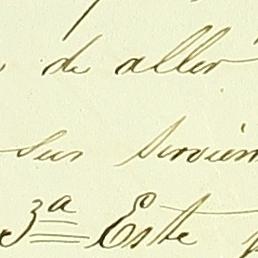 de aller
sus servien
3ª Este